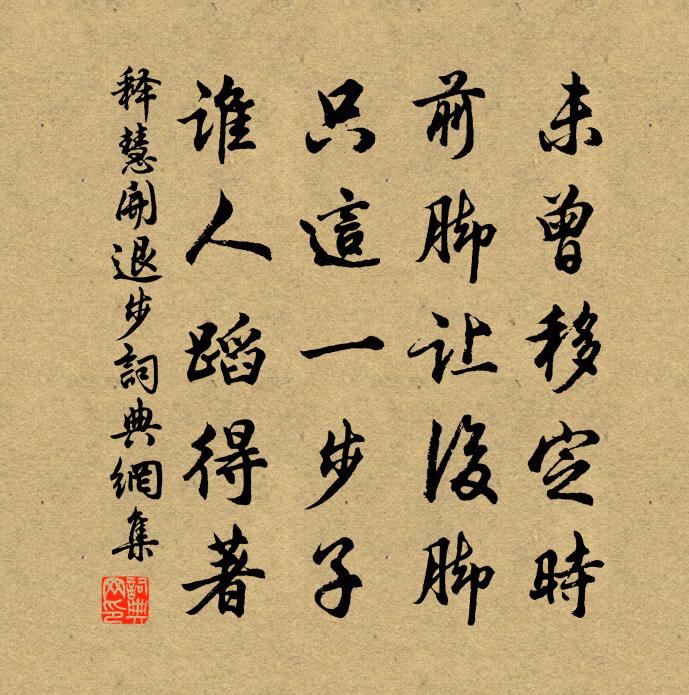 未曾移定時
前脚让後脚
只這一步子
谁人蹈得著
释慧開退步詞典網集
詞典
网印